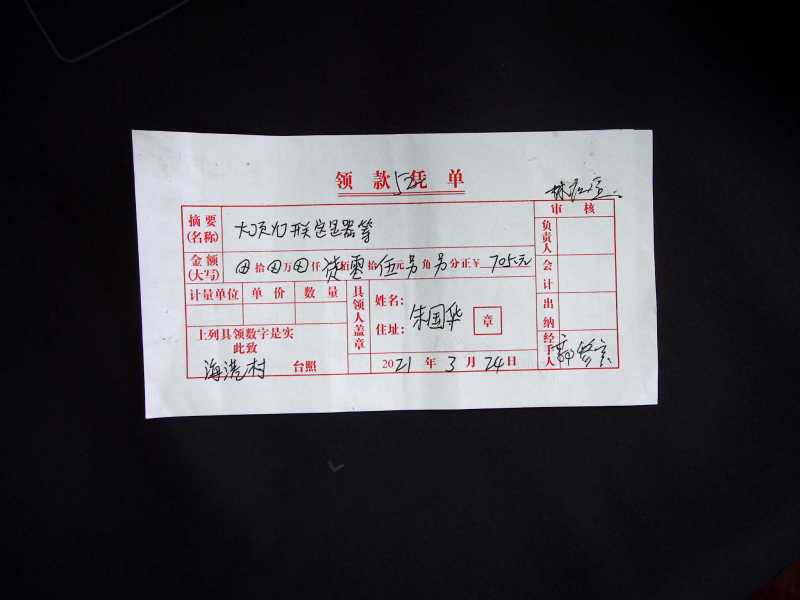 领款凭单
审核
摘要(名称) 大顶灯形 器等
负责人
金额(大写) 拾 万 仟 柒佰零拾伍元 角 分正¥ 705元
会计
计量单位 单价 数量 具领人盖章 姓名: 朱国华
住址: 章
出纳
上列具领数字是实
此致
海港村 台照 2021年3月24日
经手人